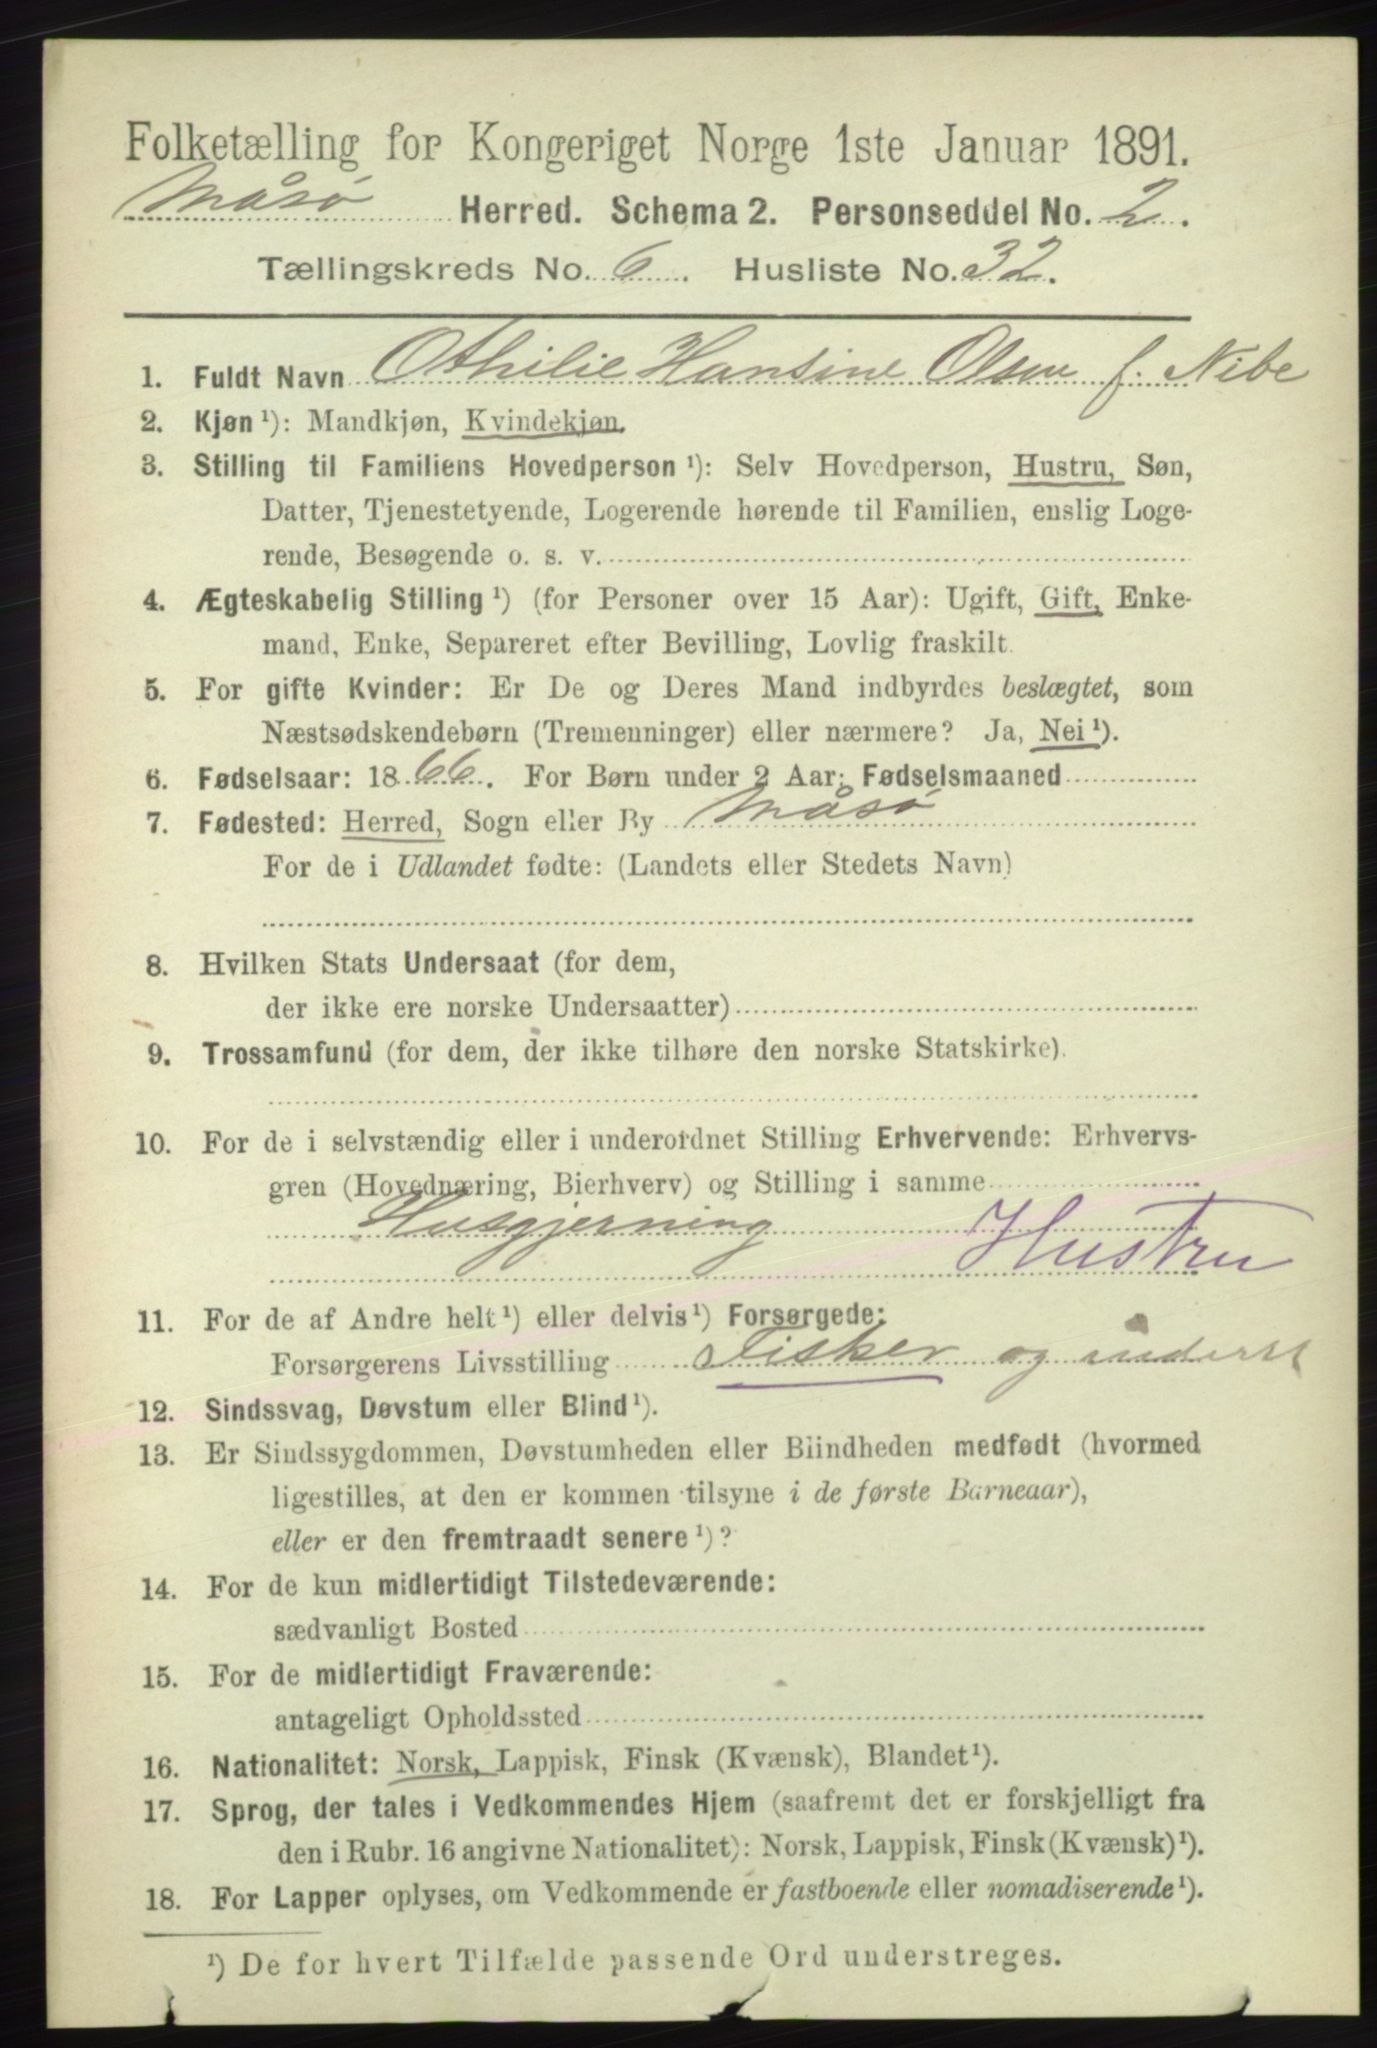 Folketælling for Kongeriget Norge 1ste Januar 1891.
Måsø Herred. Schema 2. Personseddel No. 2.
Tællingskreds No. 6. Husliste No. 32.
1. Fuldt Navn Othilie Hansine Olsen f. Nibe
2. Kjøn ¹): Mandkjøn, Kvindekjøn.
3. Stilling til Familiens Hovedperson ¹): Selv Hovedperson, Hustru, Søn,
Datter, Tjenestetyende, Logerende hørende til Familien, enslig Loge-
rende, Besøgende o. s. v.
4. Ægteskabelig Stilling ¹) (for Personer over 15 Aar): Ugift, Gift, Enke-
mand, Enke, Separeret efter Bevilling, Lovlig fraskilt.
5. For gifte Kvinder: Er De og Deres Mand indbyrdes beslægtet, som
Næstsødskendebørn (Tremenninger) eller nærmere? Ja, Nei ¹).
6. Fødselsaar: 1866. For Børn under 2 Aar: Fødselsmaaned
7. Fødested: Herred, Sogn eller By Måsø
For de i Udlandet fødte: (Landets eller Stedets Navn)
8. Hvilken Stats Undersaat (for dem,
der ikke ere norske Undersaatter)
9. Trossamfund (for dem, der ikke tilhøre den norske Statskirke).
10. For de i selvstændig eller i underordnet Stilling Erhvervende: Erhvervs-
gren (Hovednæring, Bierhverv) og Stilling i samme
Husgjerning Hustru
11. For de af Andre helt ¹) eller delvis ¹) Forsørgede:
Forsørgerens Livsstilling Fisker og inderst
12. Sindssvag, Døvstum eller Blind ¹).
13. Er Sindssygdommen, Døvstumheden eller Blindheden medfødt (hvormed
ligestilles, at den er kommen tilsyne i de første Barneaar),
eller er den fremtraadt senere ¹)?
14. For de kun midlertidigt Tilstedeværende:
sædvanligt Bosted
15. For de midlertidigt Fraværende:
antageligt Opholdssted
16. Nationalitet: Norsk, Lappisk, Finsk (Kvænsk), Blandet ¹).
17. Sprog, der tales i Vedkommendes Hjem (saafremt det er forskjelligt fra
den i Rubr. 16 angivne Nationalitet): Norsk, Lappisk, Finsk (Kvænsk) ¹).
18. For Lapper oplyses, om Vedkommende er fastboende eller nomadiserende ¹).
¹) De for hvert Tilfælde passende Ord understreges.